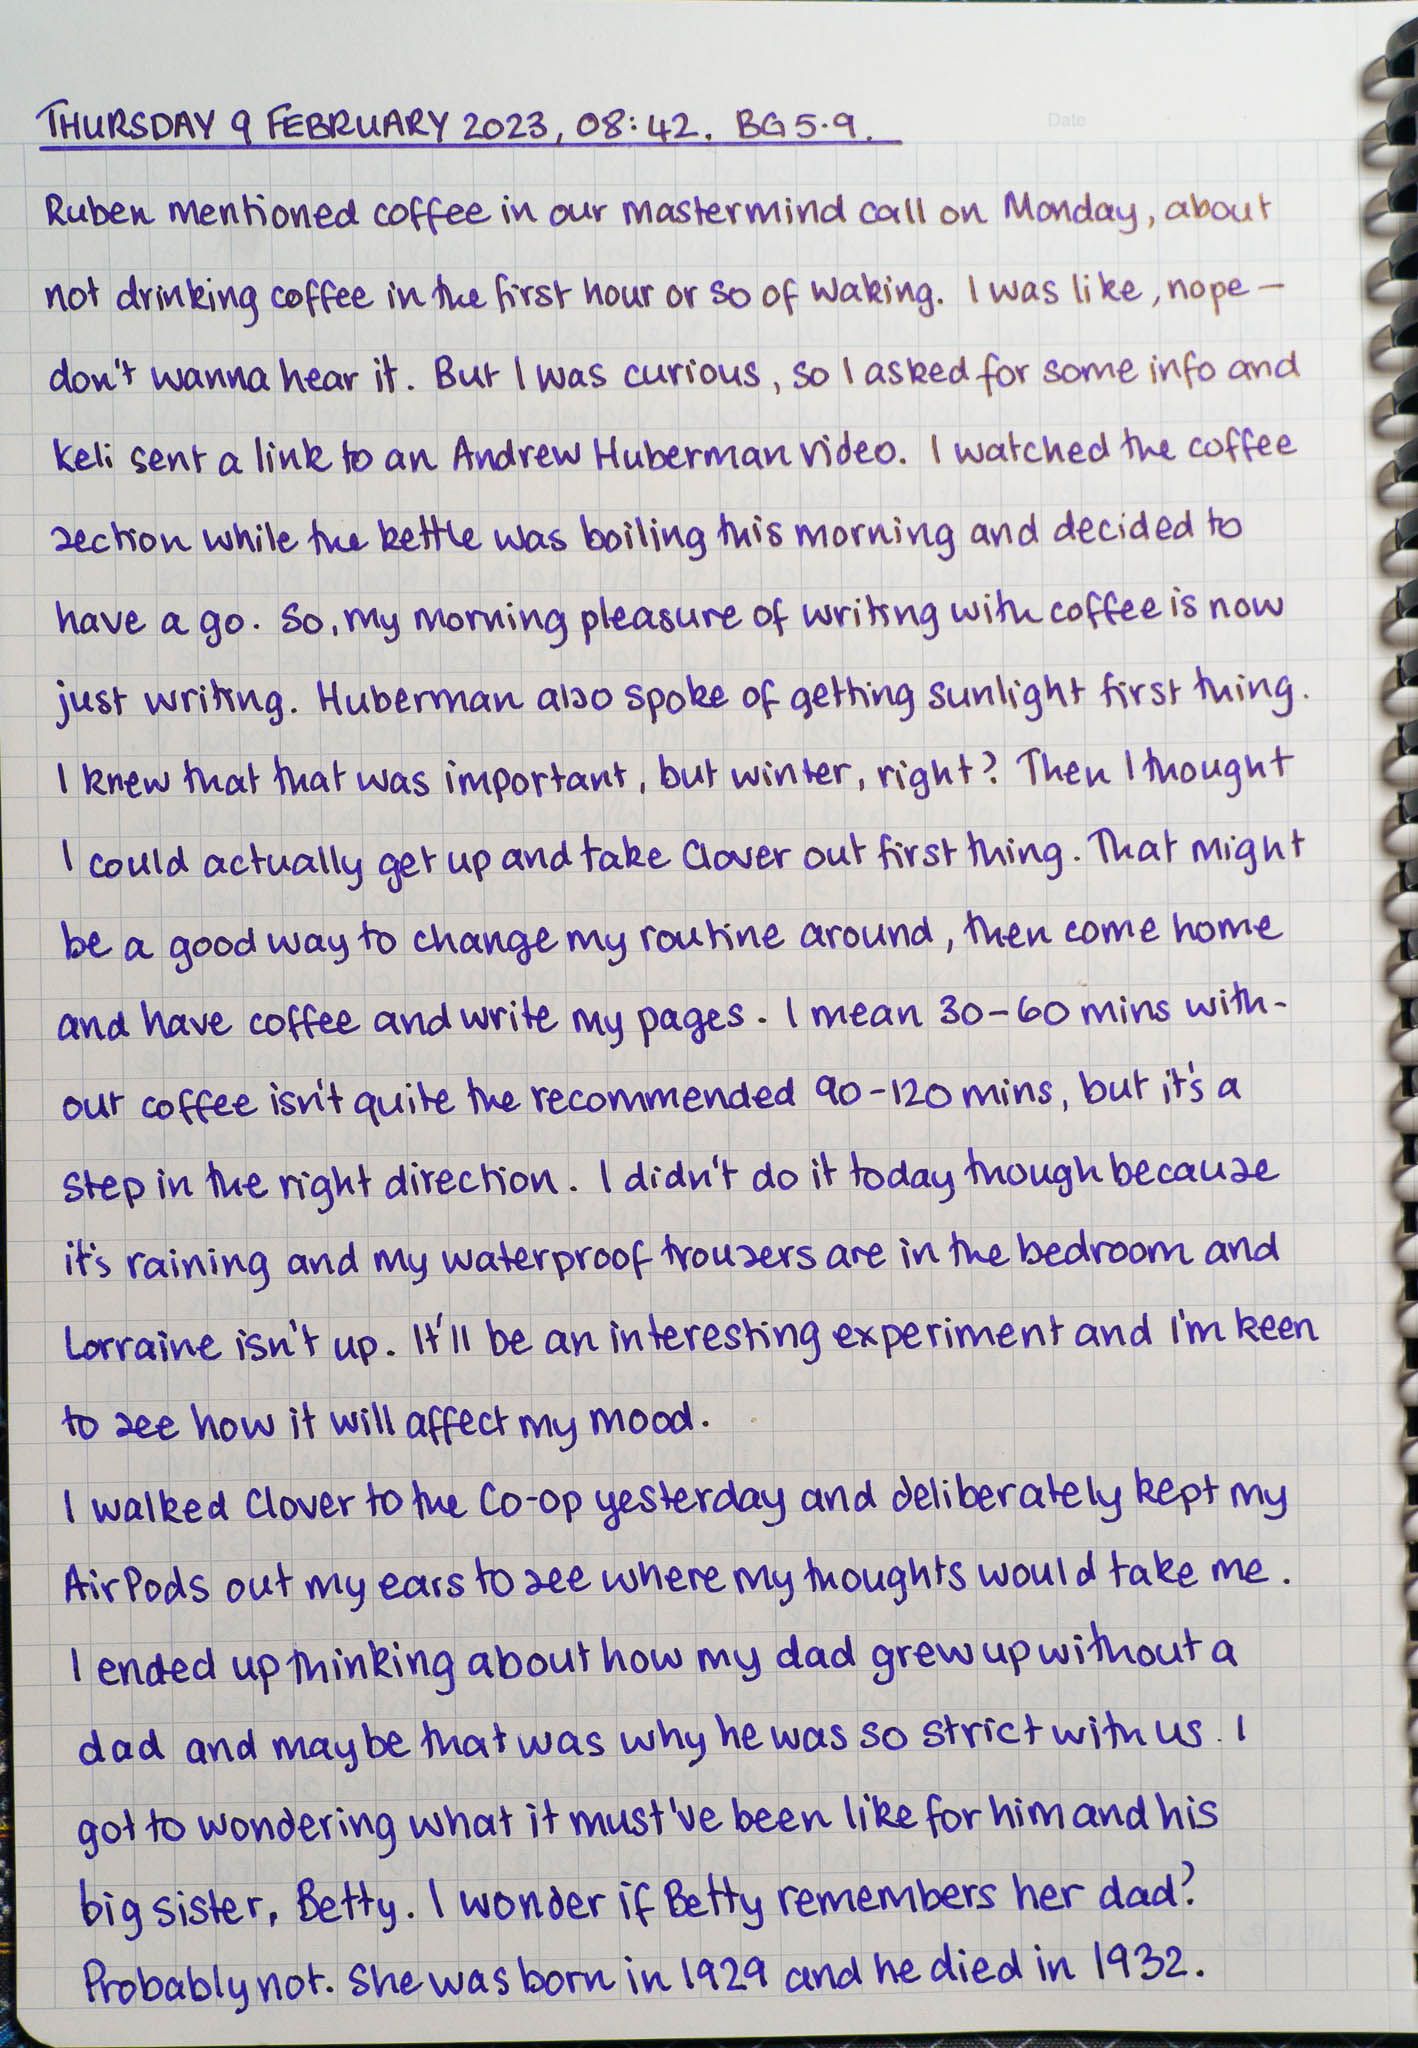 THURSDAY 9 FEBRUARY 2023, 08:42. BG 5.9.
Date
Ruben mentioned coffee in our mastermind call on Monday, about
not drinking coffee in the first hour or so of waking. I was like, nope –
don't wanna hear it. But I was curious, so I asked for some info and
Keli sent a link to an Andrew Huberman video. I watched the coffee
section while the kettle was boiling this morning and decided to
have a go. So, my morning pleasure of writing with coffee is now
just writing. Huberman also spoke of getting sunlight first thing.
I knew that that was important, but winter, right? Then I thought
I could actually get up and take Clover out first thing. That might
be a good way to change my routine around, then come home
and have coffee and write my pages. I mean 30–60 mins with-
out coffee isn't quite the recommended 90–120 mins, but it's a
step in the right direction. I didn't do it today though because
it's raining and my waterproof trousers are in the bedroom and
Lorraine isn't up. It'll be an interesting experiment and I'm keen
to see how it will affect my mood.
I walked Clover to the Co-op yesterday and deliberately kept my
AirPods out my ears to see where my thoughts would take me.
I ended up thinking about how my dad grew up without a
dad and maybe that was why he was so strict with us. I
got to wondering what it must've been like for him and his
big sister, Betty. I wonder if Betty remembers her dad?
Probably not. She was born in 1929 and he died in 1932.